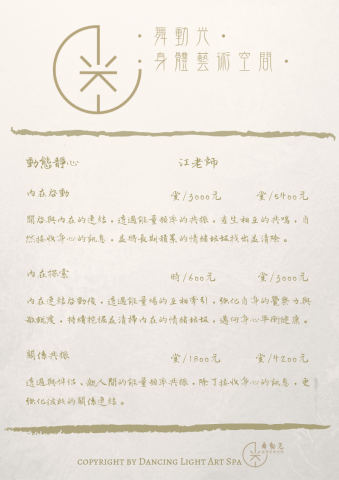 ·舞動光·
·身體藝術空間·
動態靜心 江老師
內在啟動 堂/3000元 堂/5400元
開啟與內在的連結，透過能量頻率的共振，產生相互的共鳴，自
然接收淨心的訊息，並將長期積累的情緒垃圾找出並清除。
內在探索 時/600元 堂/3000元
內在連結啟動後，透過能量場的互相牽引，強化自身的覺察力與
敏銳度，持續挖掘並清掃內在的情緒垃圾，邁向身心平衡健康。
關係共振 堂/1800元 堂/4200元
透過與伴侶、親人間的能量頻率共振，除了接收淨心的訊息，更
強化彼此的關係連結。
舞動光
copyright by Dancing Light Art Spa